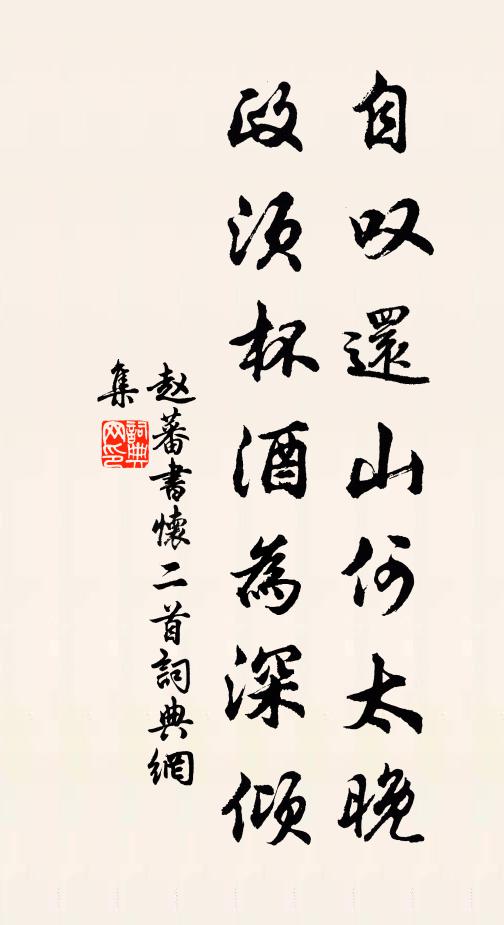 自叹還山何太晚
政须杯酒為深倾
赵蕃書懷二首詞典網
集
詞典網印